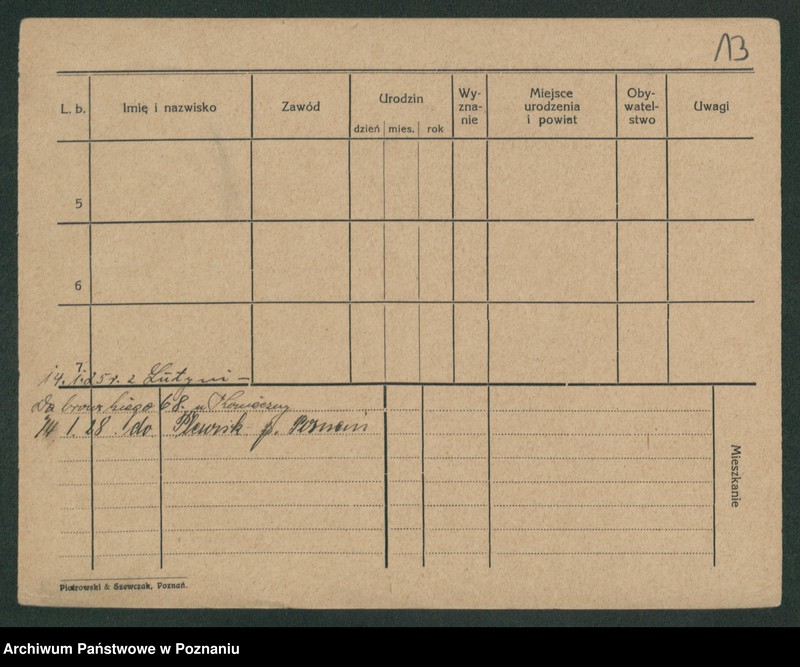 13
L. b. Imię i nazwisko Zawód Urodzin Wy-zna-nie Miejsce urodzenia i powiat Oby-watel-stwo Uwagi
dzień mies. rok
5
6
7
14. 1. 25 r. z Lutyni —
Dąbrowskiego 68. u
14 1. 28. do p. Poznań
Mieszkanie
Piotrowski & Szewczak, Poznań.
Archiwum Państwowe w Poznaniu